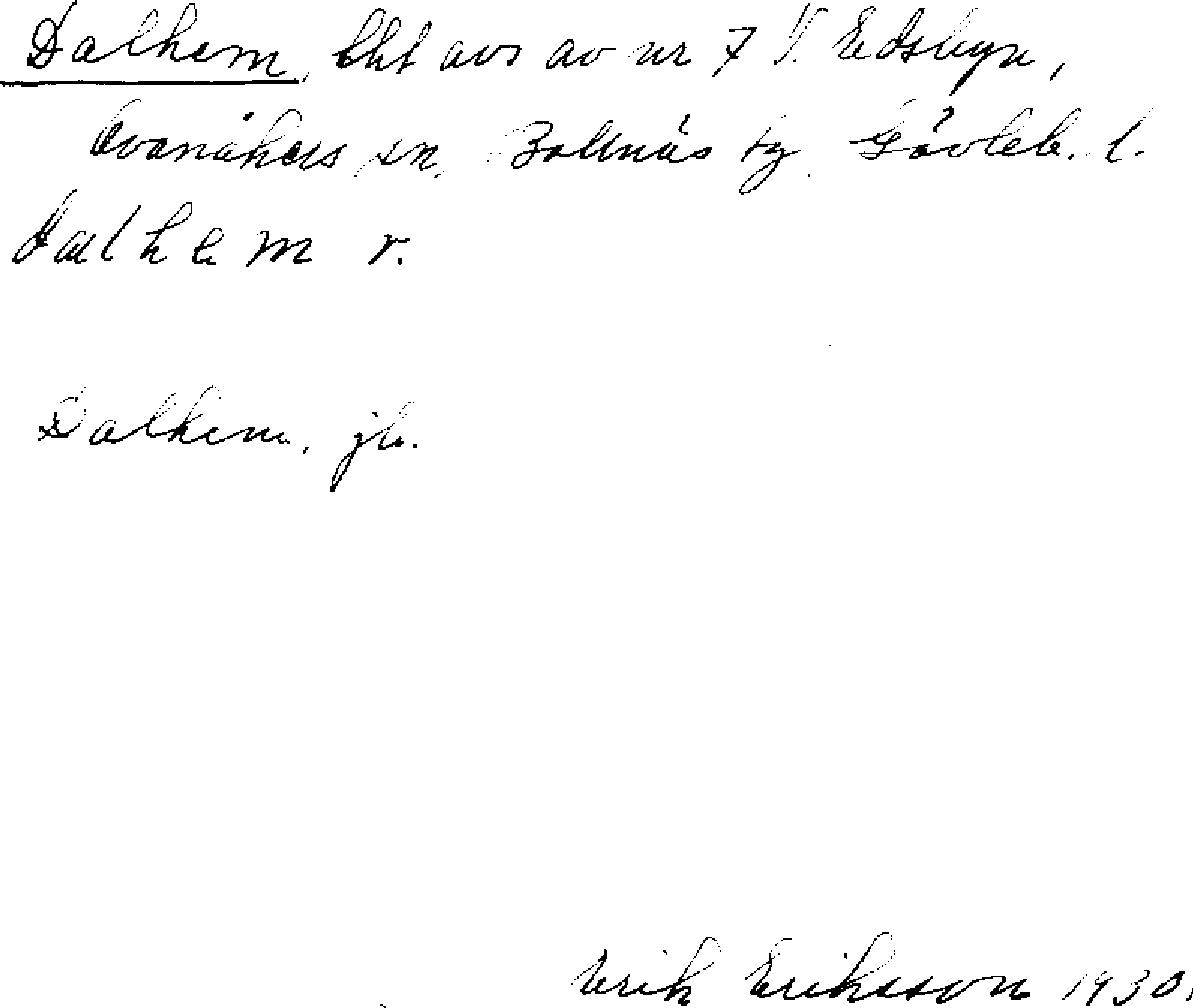 Dalhem, lht avs av nr 7 V. Edsbyn,
Ovanåkers sn, Bollnäs tg. Gävleb. l.
dalhem r.
Dalhem, jb.
Erik Eriksson 1930.